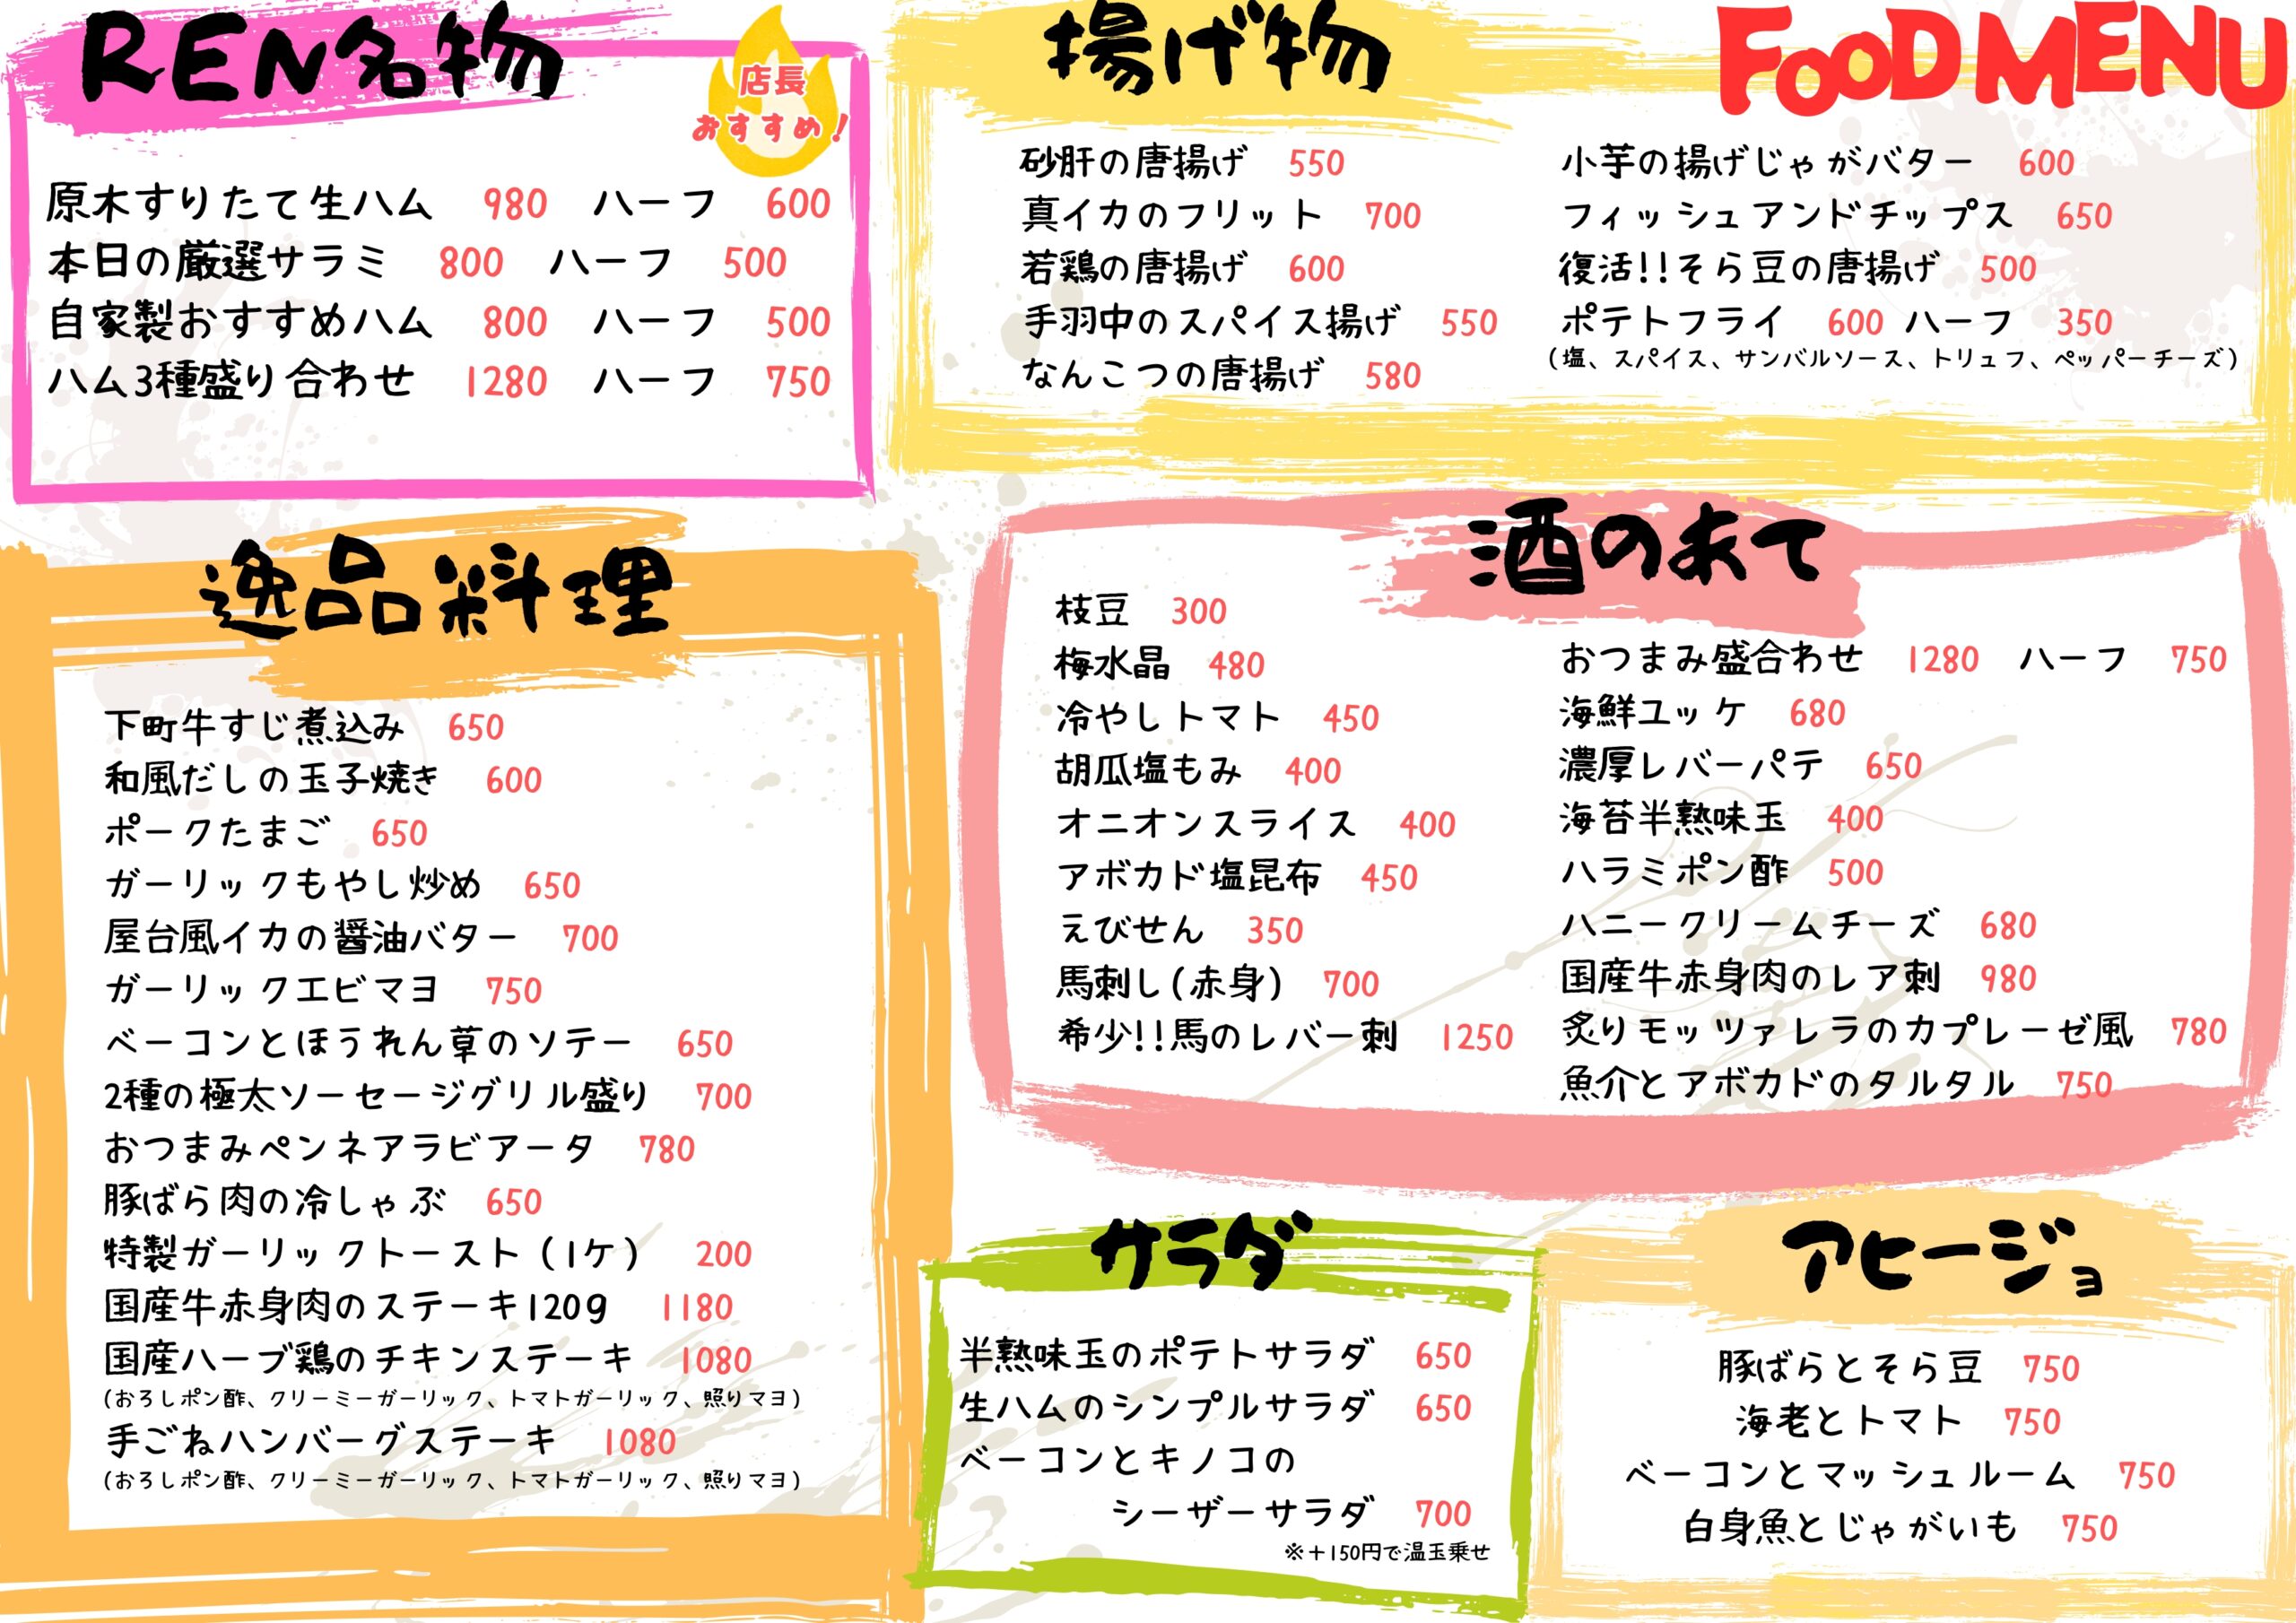 REN名物
店長
おすすめ!
原木すりたて生ハム 980 ハーフ 600
本日の厳選サラミ 800 ハーフ 500
自家製おすすめハム 800 ハーフ 500
ハム3種盛り合わせ 1280 ハーフ 750
揚げ物
FOOD MENU
砂肝の唐揚げ 550
真イカのフリット 700
若鶏の唐揚げ 600
手羽中のスパイス揚げ 550
なんこつの唐揚げ 580
小芋の揚げじゃがバター 600
フィッシュアンドチップス 650
復活!!そら豆の唐揚げ 500
ポテトフライ 600 ハーフ 350
(塩、スパイス、サンバルソース、トリュフ、ペッパーチーズ)
逸品料理
下町牛すじ煮込み 650
和風だしの玉子焼き 600
ポークたまご 650
ガーリックもやし炒め 650
屋台風イカの醤油バター 700
ガーリックエビマヨ 750
ベーコンとほうれん草のソテー 650
2種の極太ソーセージグリル盛り 700
おつまみペンネアラビアータ 780
豚ばら肉の冷しゃぶ 650
特製ガーリックトースト(1ケ) 200
国産牛赤身肉のステーキ120g 1180
国産ハーブ鶏のチキンステーキ 1080
(おろしポン酢、クリーミーガーリック、トマトガーリック、照りマヨ)
手ごねハンバーグステーキ 1080
(おろしポン酢、クリーミーガーリック、トマトガーリック、照りマヨ)
酒のあて
枝豆 300
梅水晶 480
冷やしトマト 450
胡瓜塩もみ 400
オニオンスライス 400
アボカド塩昆布 450
えびせん 350
馬刺し(赤身) 700
希少!!馬のレバー刺 1250
おつまみ盛合わせ 1280 ハーフ 750
海鮮ユッケ 680
濃厚レバーパテ 650
海苔半熟味玉 400
ハラミポン酢 500
ハニークリームチーズ 680
国産牛赤身肉のレア刺 980
炙りモッツァレラのカプレーゼ風 780
魚介とアボカドのタルタル 750
サラダ
半熟味玉のポテトサラダ 650
生ハムのシンプルサラダ 650
ベーコンとキノコの
シーザーサラダ 700
※+150円で温玉乗せ
アヒージョ
豚ばらとそら豆 750
海老とトマト 750
ベーコンとマッシュルーム 750
白身魚とじゃがいも 750